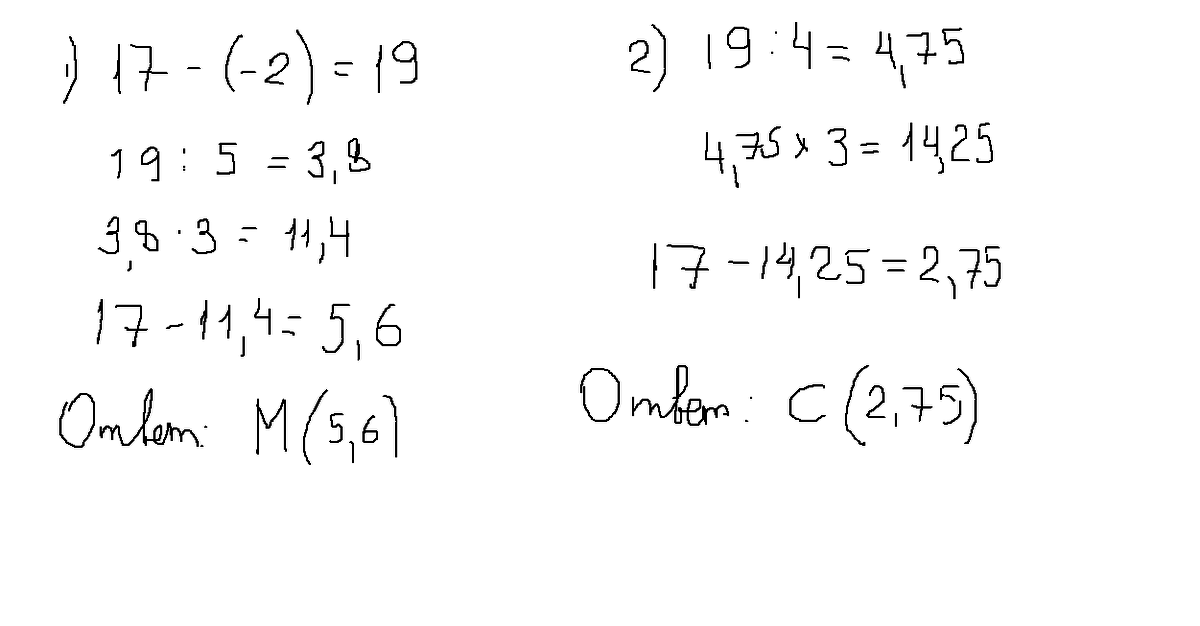 1) 17 - (-2) = 19
19 : 5 = 3,8
3,8 · 3 = 11,4
17 - 11,4 = 5,6
Ответ: М (5,6)
2) 19 : 4 = 4,75
4,75 × 3 = 14,25
17 - 14,25 = 2,75
Ответ: С (2,75)